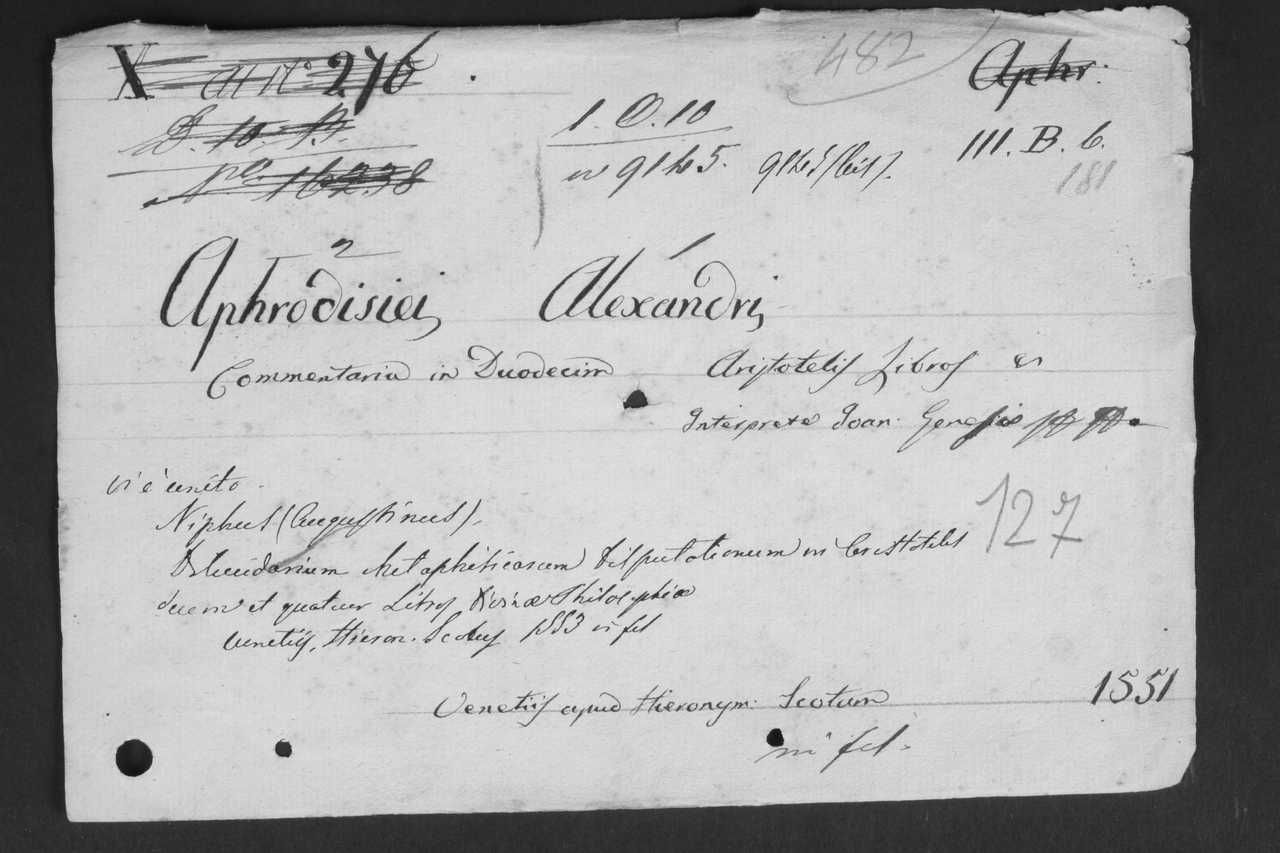 X 276 482 Aphr.
D. 10. 1. O. 10
16238 n 9145. 9145 (bis). III. B. 6.
181
2 1
Aphrodisiei Alexandri
Commentaria in Duodecim Aristotelis Libros &
Interprete Joan: Genesio
Vi è unito
Niphus (Augustinus).
127
Dilucidarium Metaphisicarum disputationum in Aristotelis
decem et quatuor Libros Divinæ Philosophiæ
Venetiis, Hieron. Scotus 1553 in fol
Venetiis apud Hieronym: Scotum 1551
in fol.